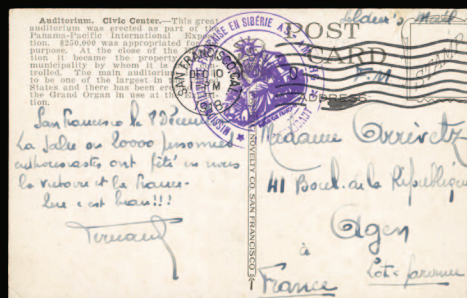 Auditorium. Civic Center.—This great
auditorium was erected as part of the
Panama-Pacific International Expo-
tion. $250,000 was appropriated for
purpose. At the close of the
tion it became the property
municipality by whom it is
trolled. The main auditorium
to be one of the largest in
States and there has been
the Grand Organ in use at the
tion.
San Francisco le 1 Décem
La Salle où 20000 personnes
enthousiastes ont fêté en nous
la victoire et la France
c'est beau!!!
POST
CARD
ADDRESS
FRANÇAISE EN SIBÉRIE
SAN FRANCISCO, CAL.
DEC 10
PM
MISSION MILITAIRE
STAMP
F.M
Madame Arrivetz
41 Boul. de la République
Agen
à
Lot-Garonne
France
CO. SAN FRANCISCO